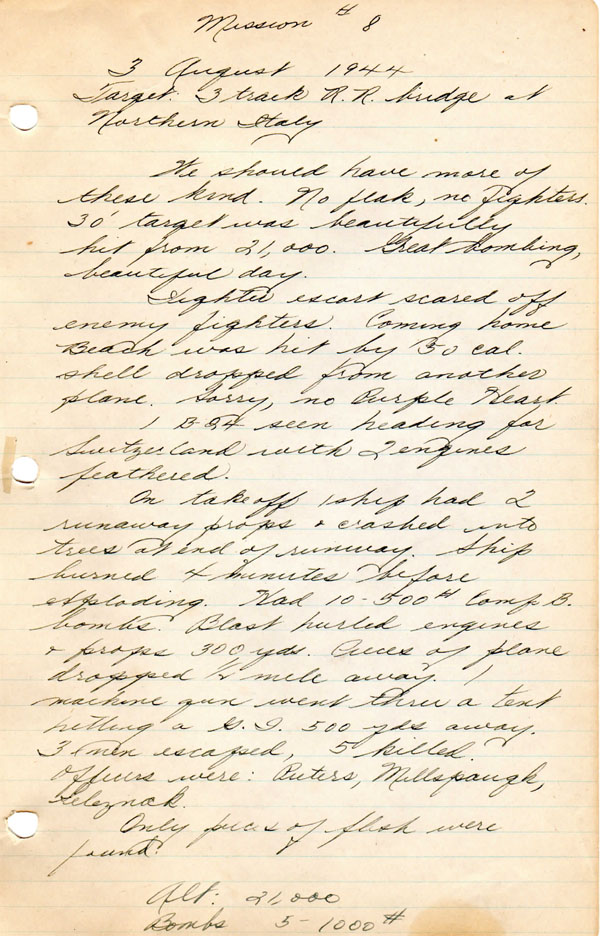 Mission # 8
3 August 1944
Target: 3 track R.R. bridge at
Northern Italy
We should have more of
these kind. No flak, no fighters.
30' target was beautifully
hit from 21,000. Great bombing,
beautiful day.
Fighter escort scared off
enemy fighters. Coming home
Beach was hit by 50 cal.
shell dropped from another
plane. Sorry, no Purple Heart.
1 B-24 seen heading for
Switzerland with 2 engines
feathered.
On takeoff 1 ship had 2
runaway props & crashed into
trees at end of runway. Ship
burned 4 minutes before
exploding. Had 10-500# Comp. B.
bombs. Blast hurled engines
& props 300 yds. Pieces of plane
dropped 1/2 mile away. 1
machine gun went thru a tent
hitting a G.I. 500 yds away.
men escaped, 5 killed.
Officers were: Peters, Millspaugh,
Only pieces of flesh were
found.
Alt: 21,000
Bombs 5-1000#